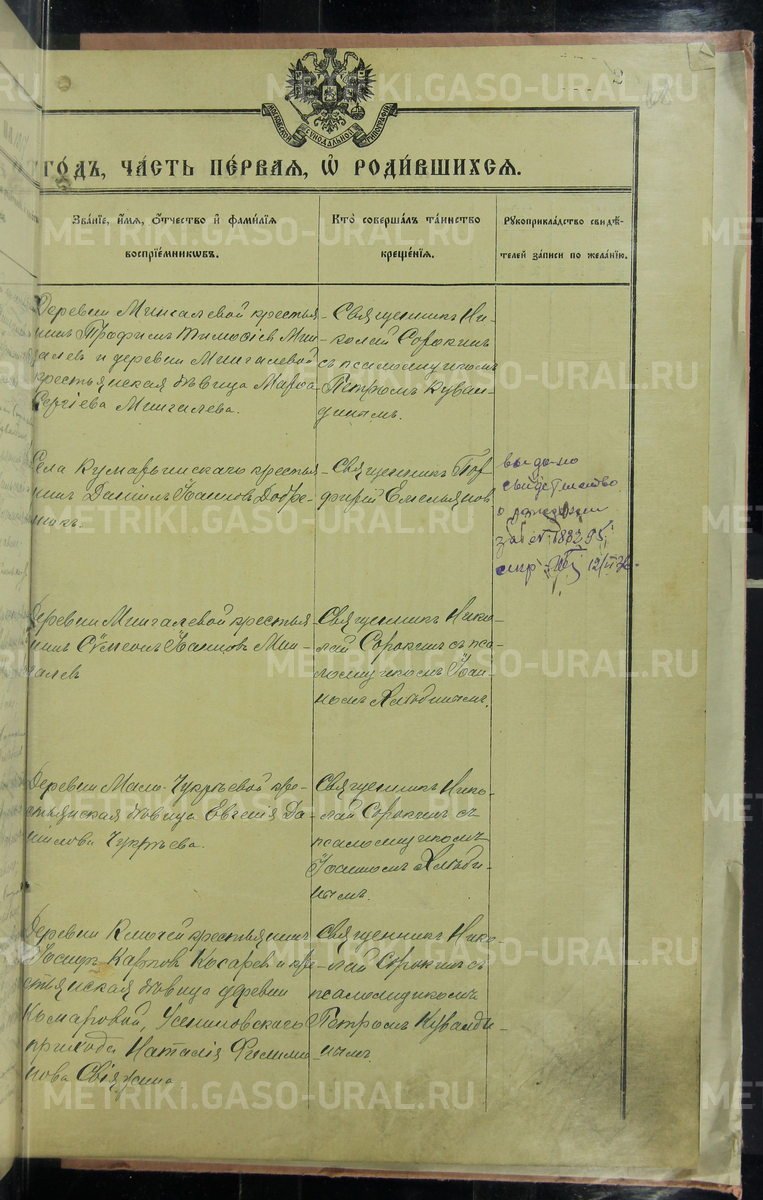 2
МОСКОВСКОЙ СѴНОДАЛЬНОЙ ТИПОГРАФІИ
ГО́ДЪ, ЧА́СТЬ ПЕ́РВАЯ, Ѡ҆ РОДИ́ВШИХСѦ.
Зва́нїе, и҆́мѧ, ѻ҆́тчество и҆ фами́лїѧ
воспрїе́мникѡвъ.
Кто̀ соверша́лъ та́инство
креще́нїѧ.
Рꙋкоприкла́дство свидѣ́-
телей за́писи по жела́нїю.
Деревни Мингалевой крестья-
нинъ Трофимъ Тимофіевъ Мин-
галевъ и деревни Мингалевой
крестьянская дѣвица Марѳа
Сергіева Мингалева.
Священникъ Ни-
колай Сорокинъ
съ псаломщикомъ
Петромъ Куван-
динымъ.
Села Кумарьинскаго крестья-
нинъ Даніилъ Іоанновъ Добры-
нинъ.
Священникъ Пор-
фирій Емельяновъ
выдано
свидетельство
о рождении
за №
12/VI
Деревни Мингалевой крестья-
нинъ Сѵмеонъ Іоанновъ Мин-
галевъ
Священникъ Нико-
лай Сорокинъ съ пса-
ломщикомъ Іоан-
номъ Хлѣбинымъ.
Деревни Мало-Чукреевой кре-
стьянская дѣвица Евгенія Да-
ніилова Чукреева.
Священникъ Нико-
лай Сорокинъ съ
псаломщикомъ
Іоанномъ Хлѣби-
нымъ.
Деревни Ключей крестьянинъ
Іосифъ Карповъ Косаревъ и кре-
стьянская дѣвица деревни
Комаровой, Усениновскаго
прихода Наталія Филимо-
нова Свіяжина
Священникъ Нико-
лай Сорокинъ съ
псаломщикомъ
Петромъ Куванди-
нымъ.
METRIKI.GASO-URAL.RU